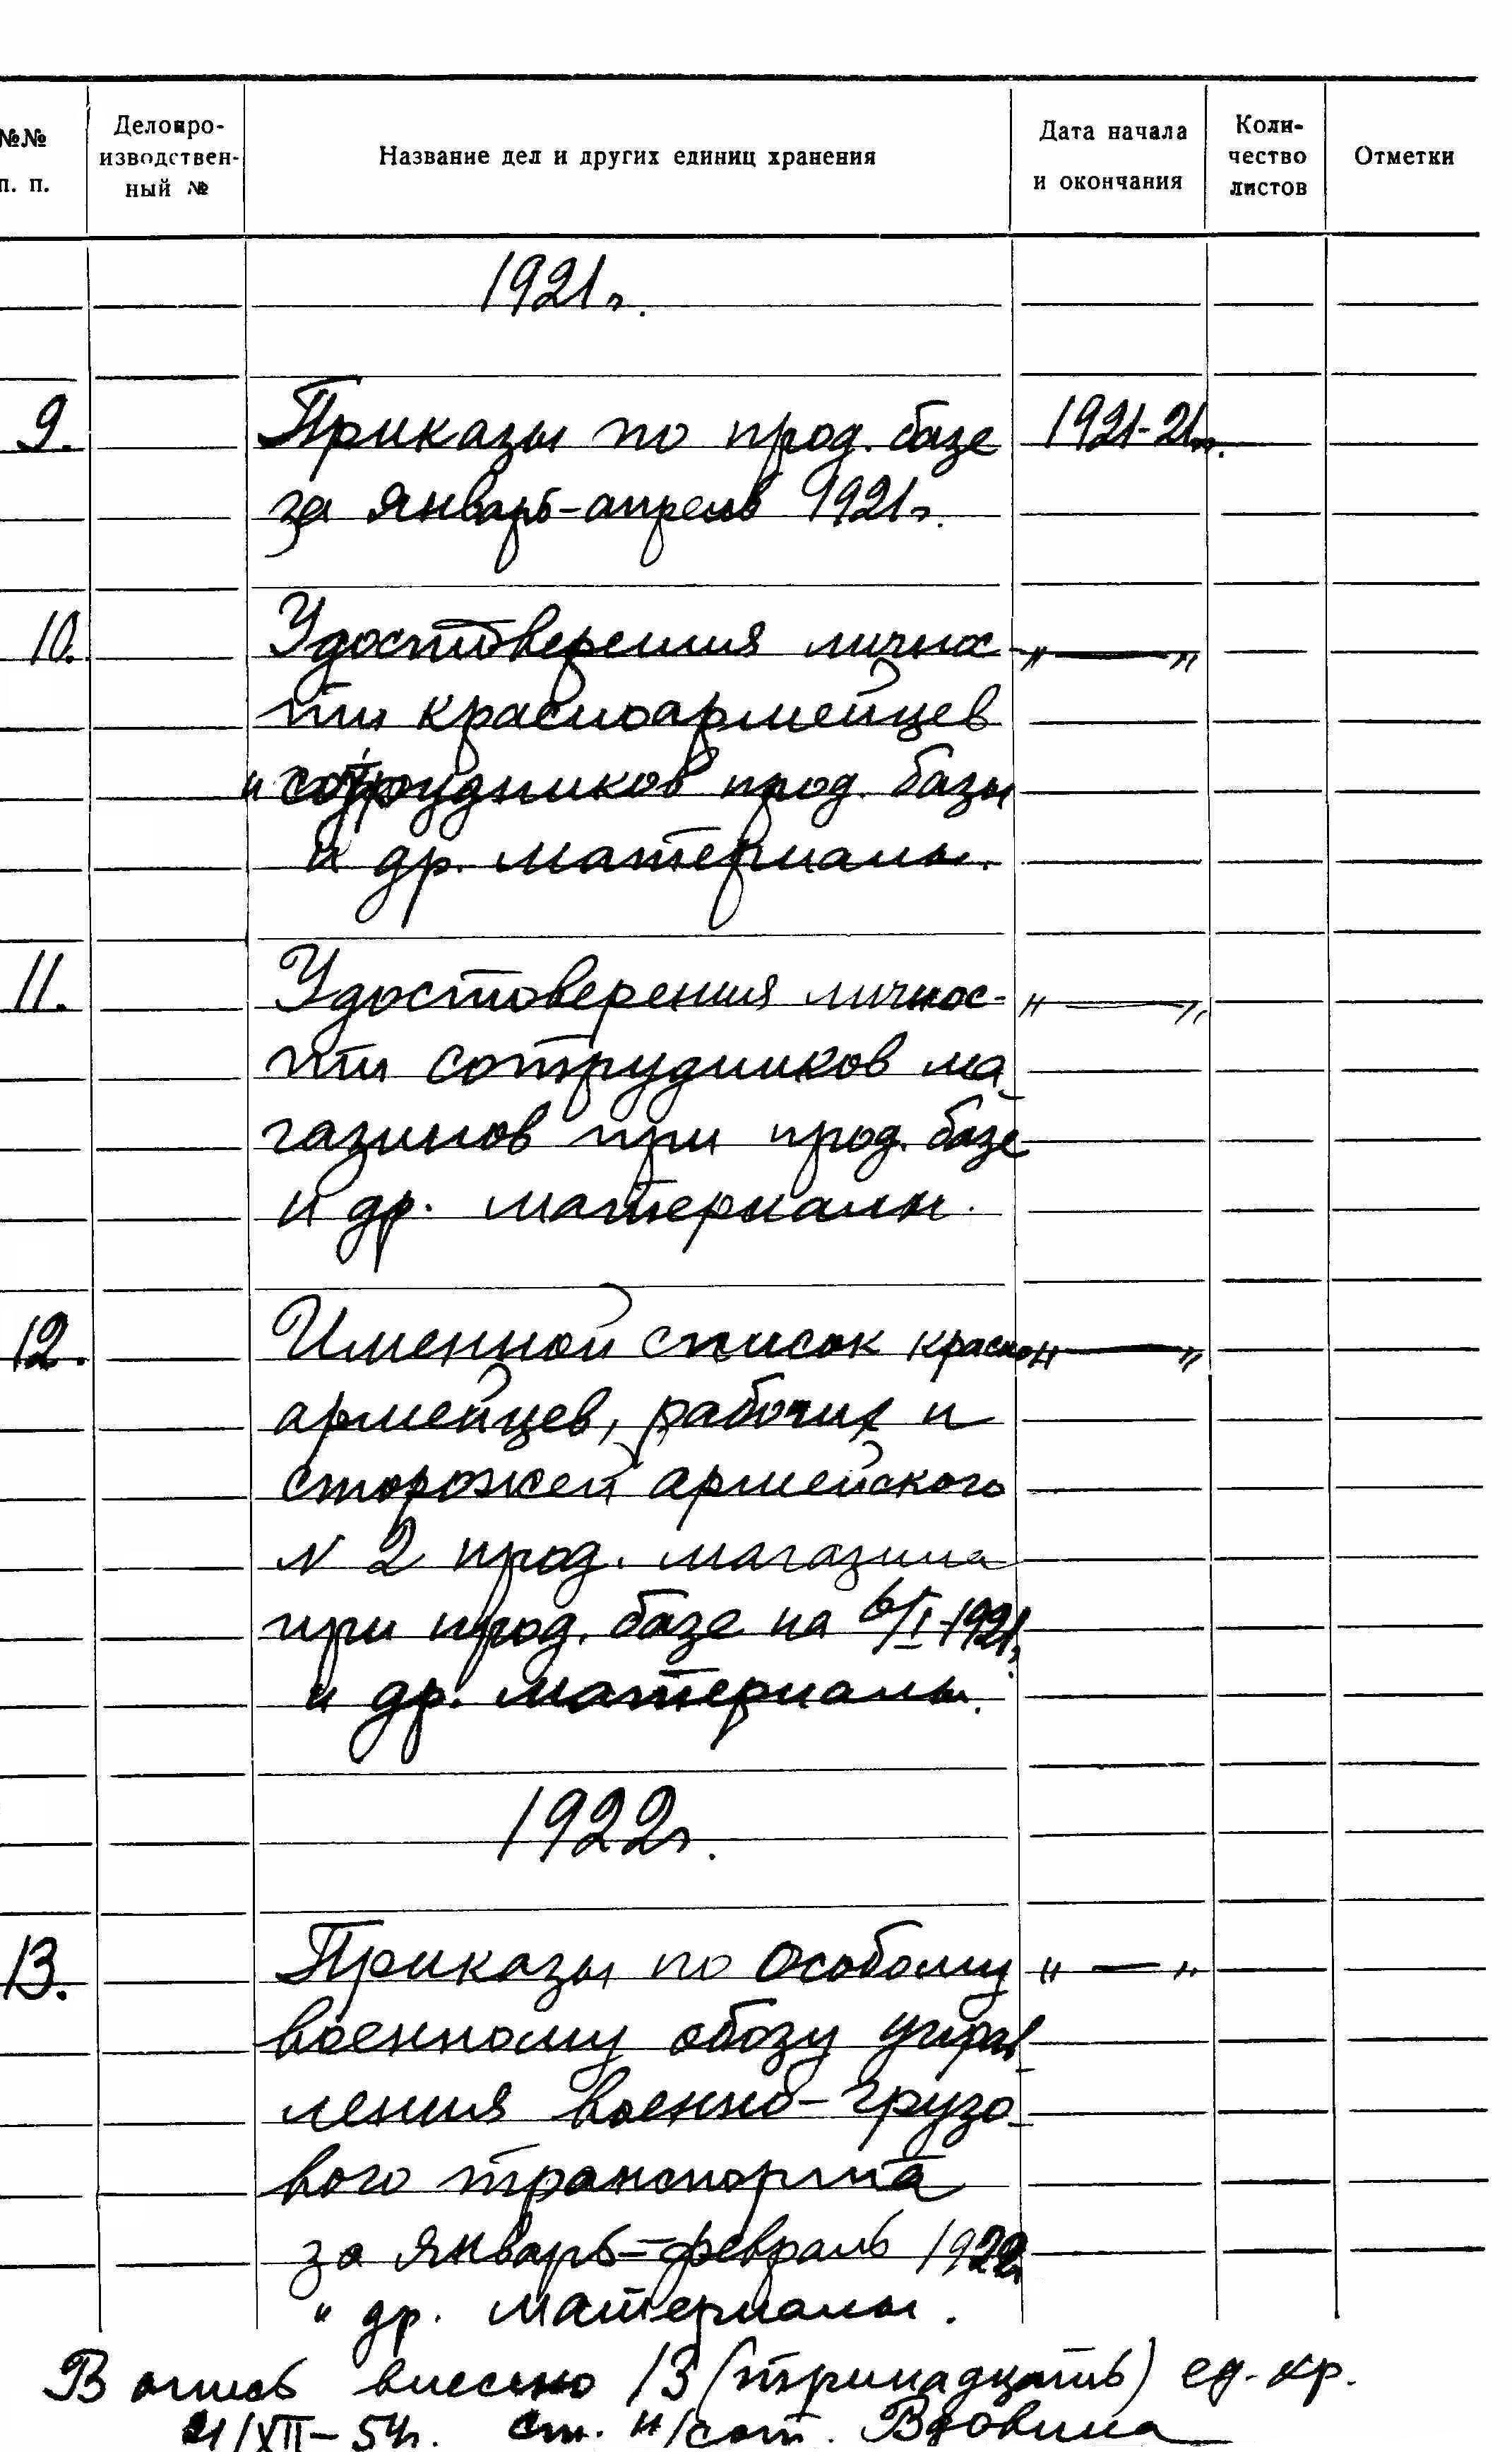 №№ п. п.
Делопро-
изводствен-
ный №
Название дел и других единиц хранения
Дата начала
и окончания
Коли-
чество
листов
Отметки
1921г.
9. Приказы по прод. базе 1921-21г.
за январь-апрель 1921г.
10. Удостоверения личнос „ — „
ти красноармейцев
и сотрудников прод. базы
и др. материалы.
11. Удостоверения личнос- „ — „
ти сотрудников ма-
газинов при прод. базе
и др. материалы.
12. Именной список красно „ — „
армейцев, рабочих и
сторожей армейского
N 2 прод. магазина
при прод. базе на 6/I-1921г.
и др. материалы.
1922г.
13. Приказы по Особому „ — „
военному обозу управ-
ления военно-грузо-
вого транспорта
за январь-февраль 1922г.
и др. материалы.
В опись внесено 13 (тринадцать) ед. хр.
21/XII-54г. Ст. н/сот. Вдовина